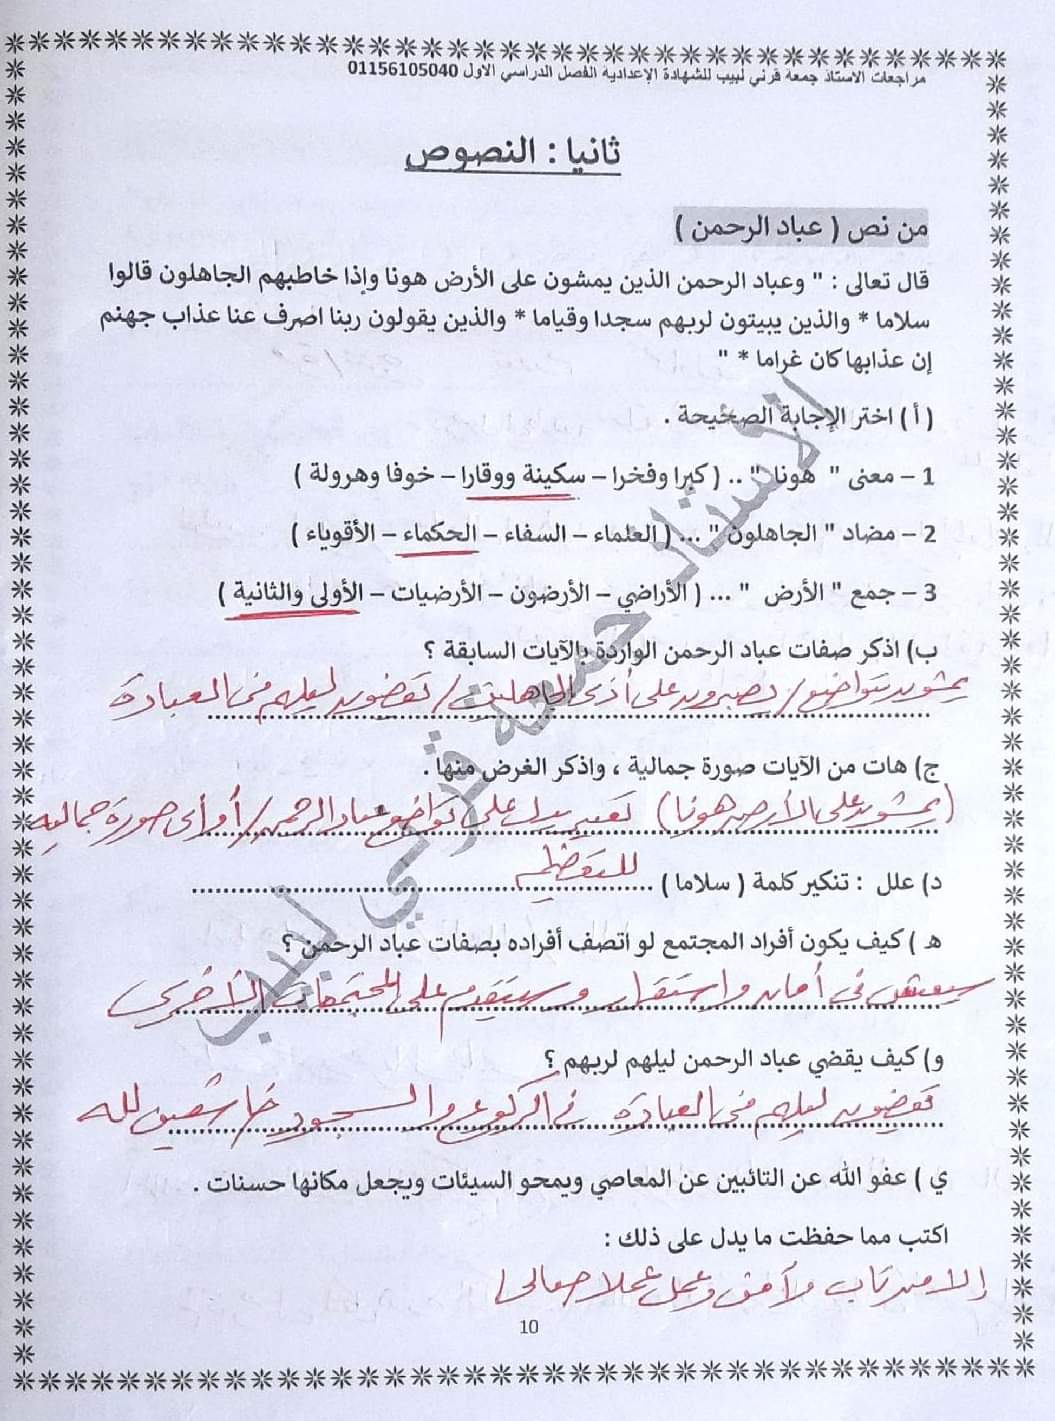 مراجعات الاستاذ جمعة قرني لبيب للشهادة الإعدادية الفصل الدراسي الاول 01156105040
ثانيا : النصوص
من نص ( عباد الرحمن )
قال تعالى : " وعباد الرحمن الذين يمشون على الأرض هونا وإذا خاطبهم الجاهلون قالوا
سلاما * والذين يبيتون لربهم سجدا وقياما * والذين يقولون ربنا اصرف عنا عذاب جهنم
إن عذابها كان غراما * "
( أ ) اختر الإجابة الصحيحة .
1 – معنى " هونا " .. ( كبرا وفخرا – سكينة ووقارا – خوفا وهرولة )
2 – مضاد " الجاهلون " ... ( العلماء – السفاء – الحكماء – الأقوياء )
3 – جمع " الأرض " ... ( الأراضي – الأرضون – الأرضيات – الأولى والثانية )
ب) اذكر صفات عباد الرحمن الواردة بالآيات السابقة ؟
يمشون بتواضع / يصبرون على أذى الجاهلين / يقضون ليلهم في العبادة
ج) هات من الآيات صورة جمالية ، واذكر الغرض منها .
(يمشون على الأرض هونا) تعبير يدل على تواضع عباد الرحمن / أو أى صورة جمالية
د) علل : تنكير كلمة ( سلاما ) للتعظيم
هـ ) كيف يكون أفراد المجتمع لو اتصف أفراده بصفات عباد الرحمن ؟
سيعيش في أمان واستقرار وسيتقدم على المجتمعات الأخرى
و) كيف يقضي عباد الرحمن ليلهم لربهم ؟
يقضون ليلهم في العبادة في الركوع والسجود خاشعين لله
ي ) عفو الله عن التائبين عن المعاصي ويمحو السيئات ويجعل مكانها حسنات .
اكتب مما حفظت ما يدل على ذلك :
إلا من تاب وآمن وعمل عملا صالحا
10
الأستاذ جمعة قرني لبيب